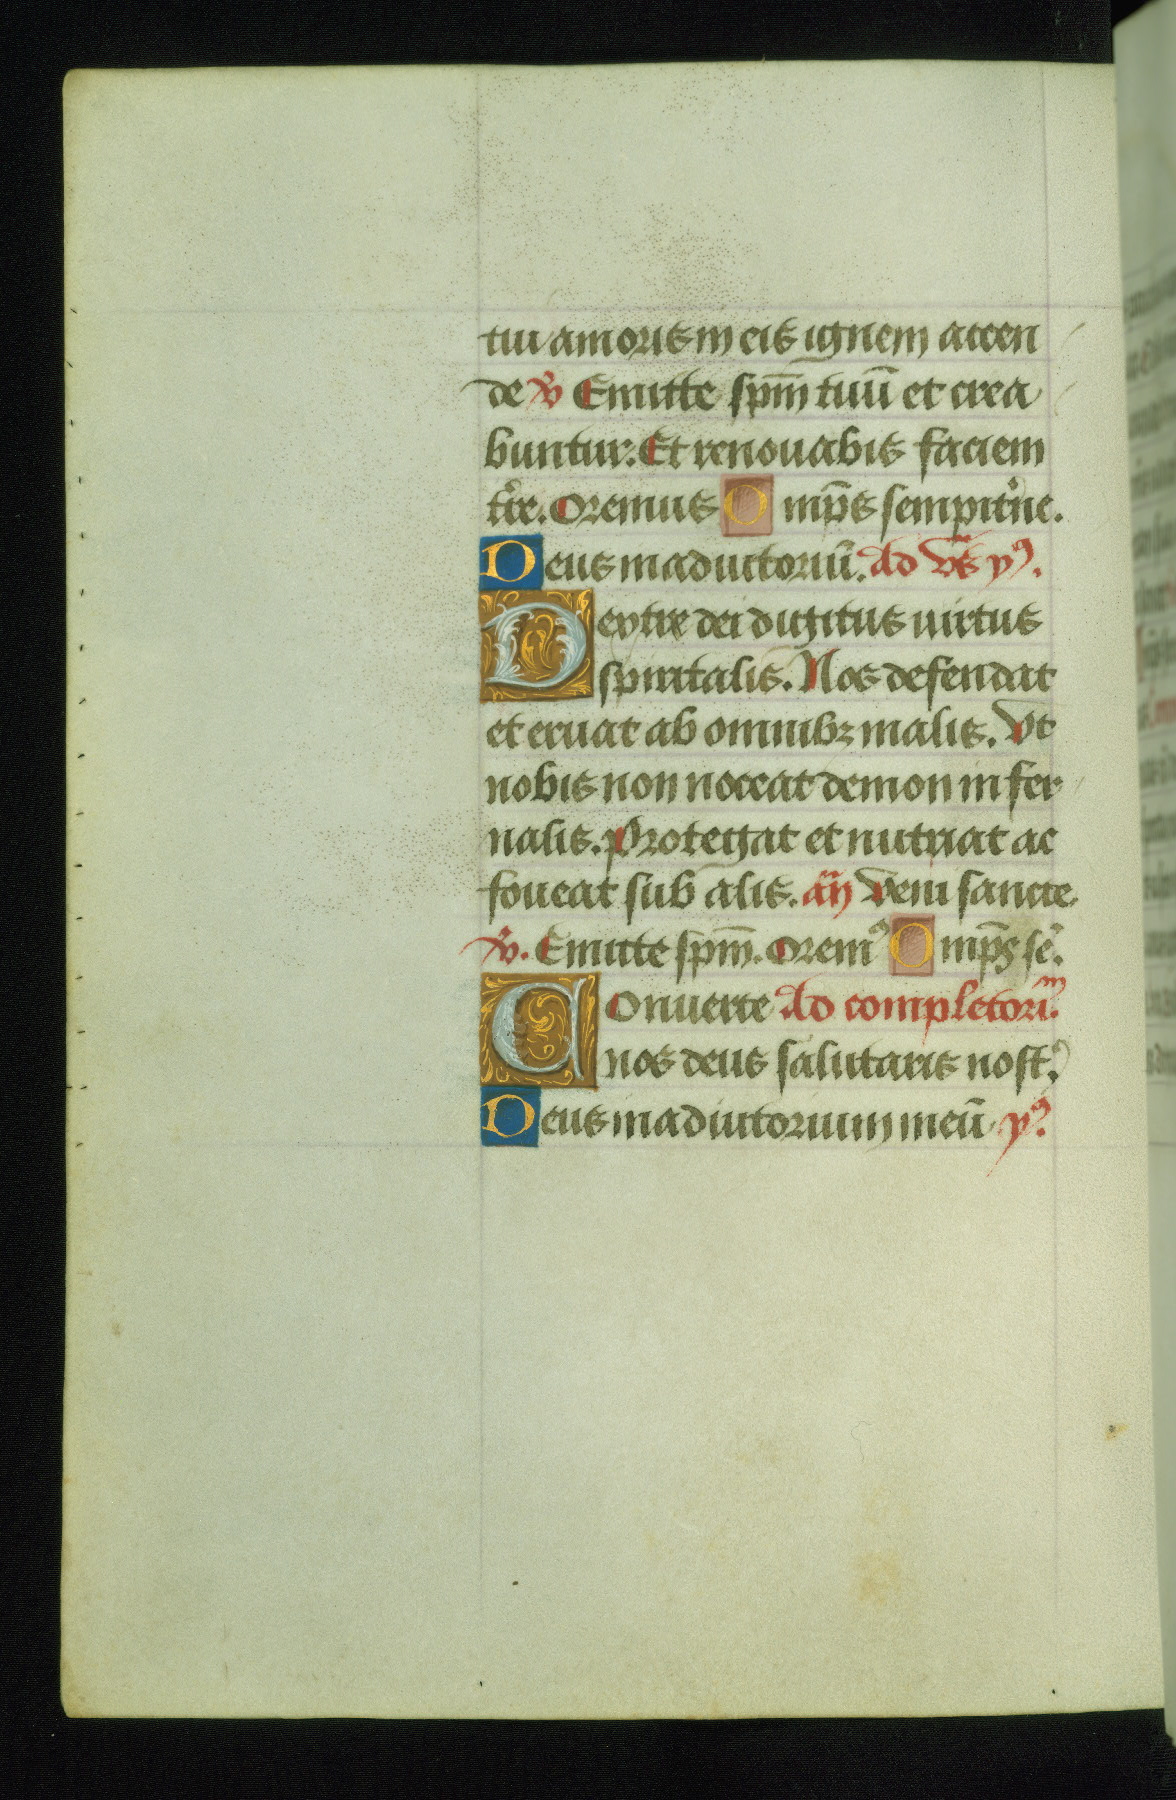 tui amoris in eis ignem accen
de v̓ Emitte sp̄m tuū et crea
buntur. Et renouabis faciem
t̓re. Oremus Omp̄s sempit̓ne.
Deus in adiutoriū. Ad vēs yꝰ.
Dextre dei digitus uirtus
spiritalis. Nos defendat
et eruat ab omnibꝫ malis. Vt
nobis non noceat demon infer
nalis. Protegat et nutriat ac
foueat sub alis. an̄ Veni sancte.
v̓. Emitte sp̄m. Oremꝰ Omp̄s se̓.
COnuerte Ad completoriᷤ.
nos deus salutaris nost̓.
Deus in adiutorium meū yꝰ